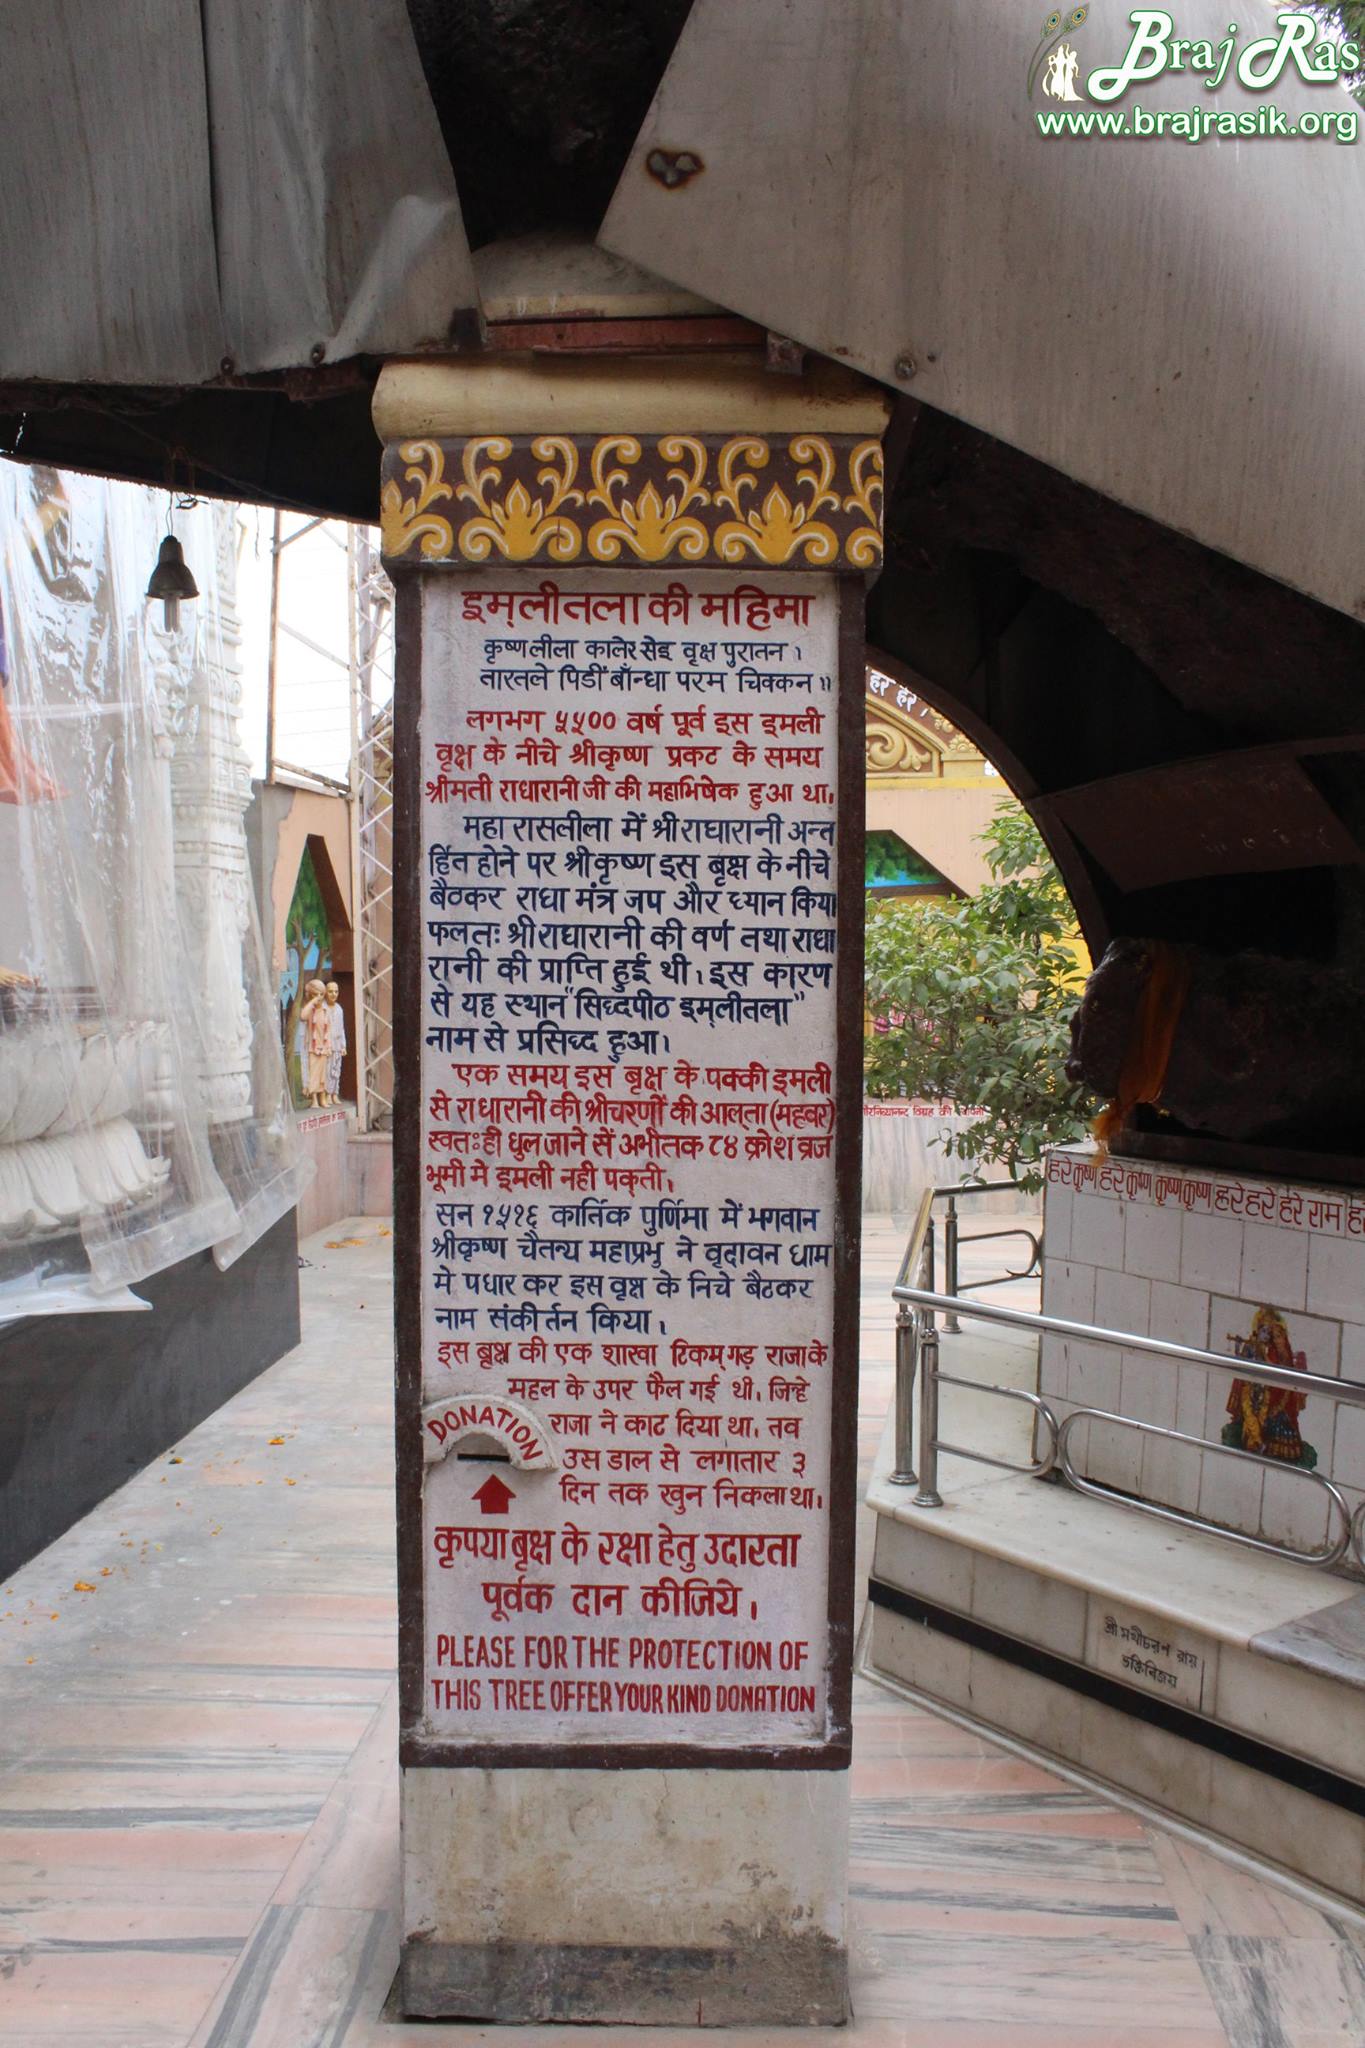 Braj Ras
www.brajrasik.org
इम्लीतला की महिमा
कृष्णलीला कालेर सेइ वृक्ष पुरातन।
तारतले पिडीं बाँन्धा परम चिक्कन॥
लगभग ५५०० वर्ष पूर्व इस इमली
वृक्ष के नीचे श्रीकृष्ण प्रकट के समय
श्रीमती राधारानी जी की महाभिषेक हुआ था।
महा रासलीला में श्री राधारानी अन्त
र्हित होने पर श्रीकृष्ण इस बृक्ष के नीचे
बैठकर राधा मंत्र जप और ध्यान किया
फलतः श्रीराधारानी की वर्ण तथा राधा
रानी की प्राप्ति हुई थी। इस कारण
से यह स्थान "सिध्दपीठ इम्लीतला"
नाम से प्रसिध्द हुआ।
एक समय इस बृक्ष के पक्की इमली
से राधारानी की श्रीचरणों की आलता (महवर)
स्वतःही धुल जाने सें अभीतक ८४ क्रोश व्रज
भूमी मे इमली नही पक्ती।
सन १५१६ कार्तिक पुर्णिमा में भगवान
श्रीकृष्ण चैतन्य महाप्रभु ने वृदावन धाम
मे पधार कर इस वृक्ष के निचे बैठकर
नाम संकीर्तन किया।
इस बृक्ष की एक शाखा टिकम्गड़ राजा के
महल के उपर फैल गई थी। जिन्हे
राजा ने काट दिया था। तव
उस डाल से लगातार ३
दिन तक खुन निकला था।
DONATION
कृपया बृक्ष के रक्षा हेतु उदारता
पूर्वक दान कीजिये।
PLEASE FOR THE PROTECTION OF
THIS TREE OFFER YOUR KIND DONATION
हरे कृष्ण हरे कृष्ण कृष्ण कृष्ण हरे हरे हरे राम